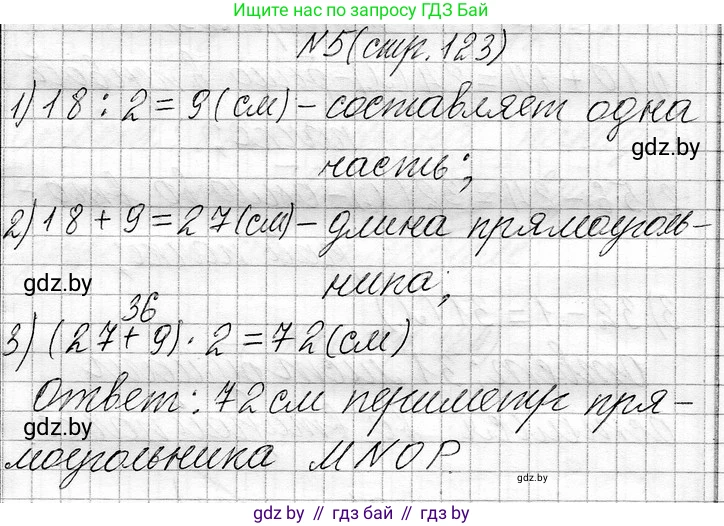 Ищите нас по запросу ГДЗ Бай
N5(стр. 123)
1) 18 : 2 = 9 (см) - составляет одна
gdz.by
часть;
2) 18 + 9 = 27 (см) - длина прямоуголь-
gdz.by
ника;
36
3) (27 + 9) · 2 = 72 (см)
Ответ: 72 см периметр пря-
gdz.by
моугольника MNOP
gdz.by
gdz.by // гдз бай // gdz.by